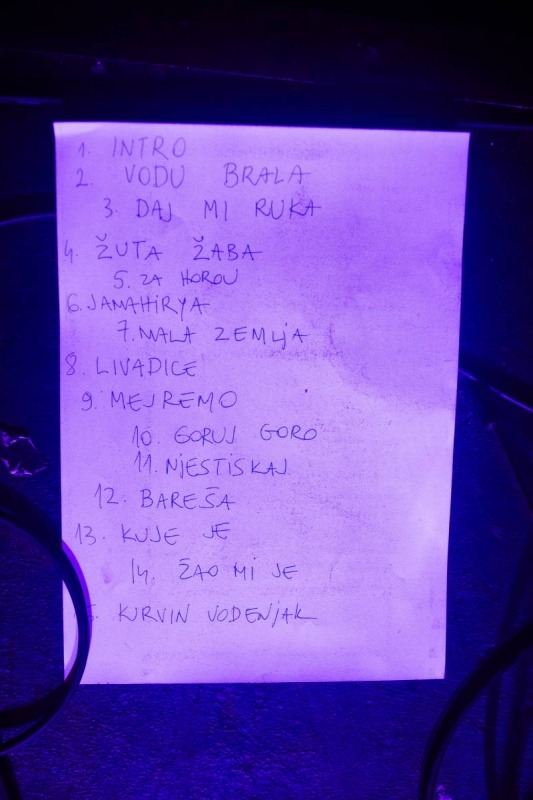 1. INTRO
2. VODU BRALA
3. DAJ MI RUKA
4. ŽUTA ŽABA
5. ZA HOROU
6. JAMAHIRYA
7. MALA ZEMLJA
8. LIVADICE
9. MEJREMO
10. GORUJ GORO
11. NJESTISKAJ
12. BAREŠA
13. KUJE JE
14. ŽAO MI JE
5. KURVIN VODENJAK